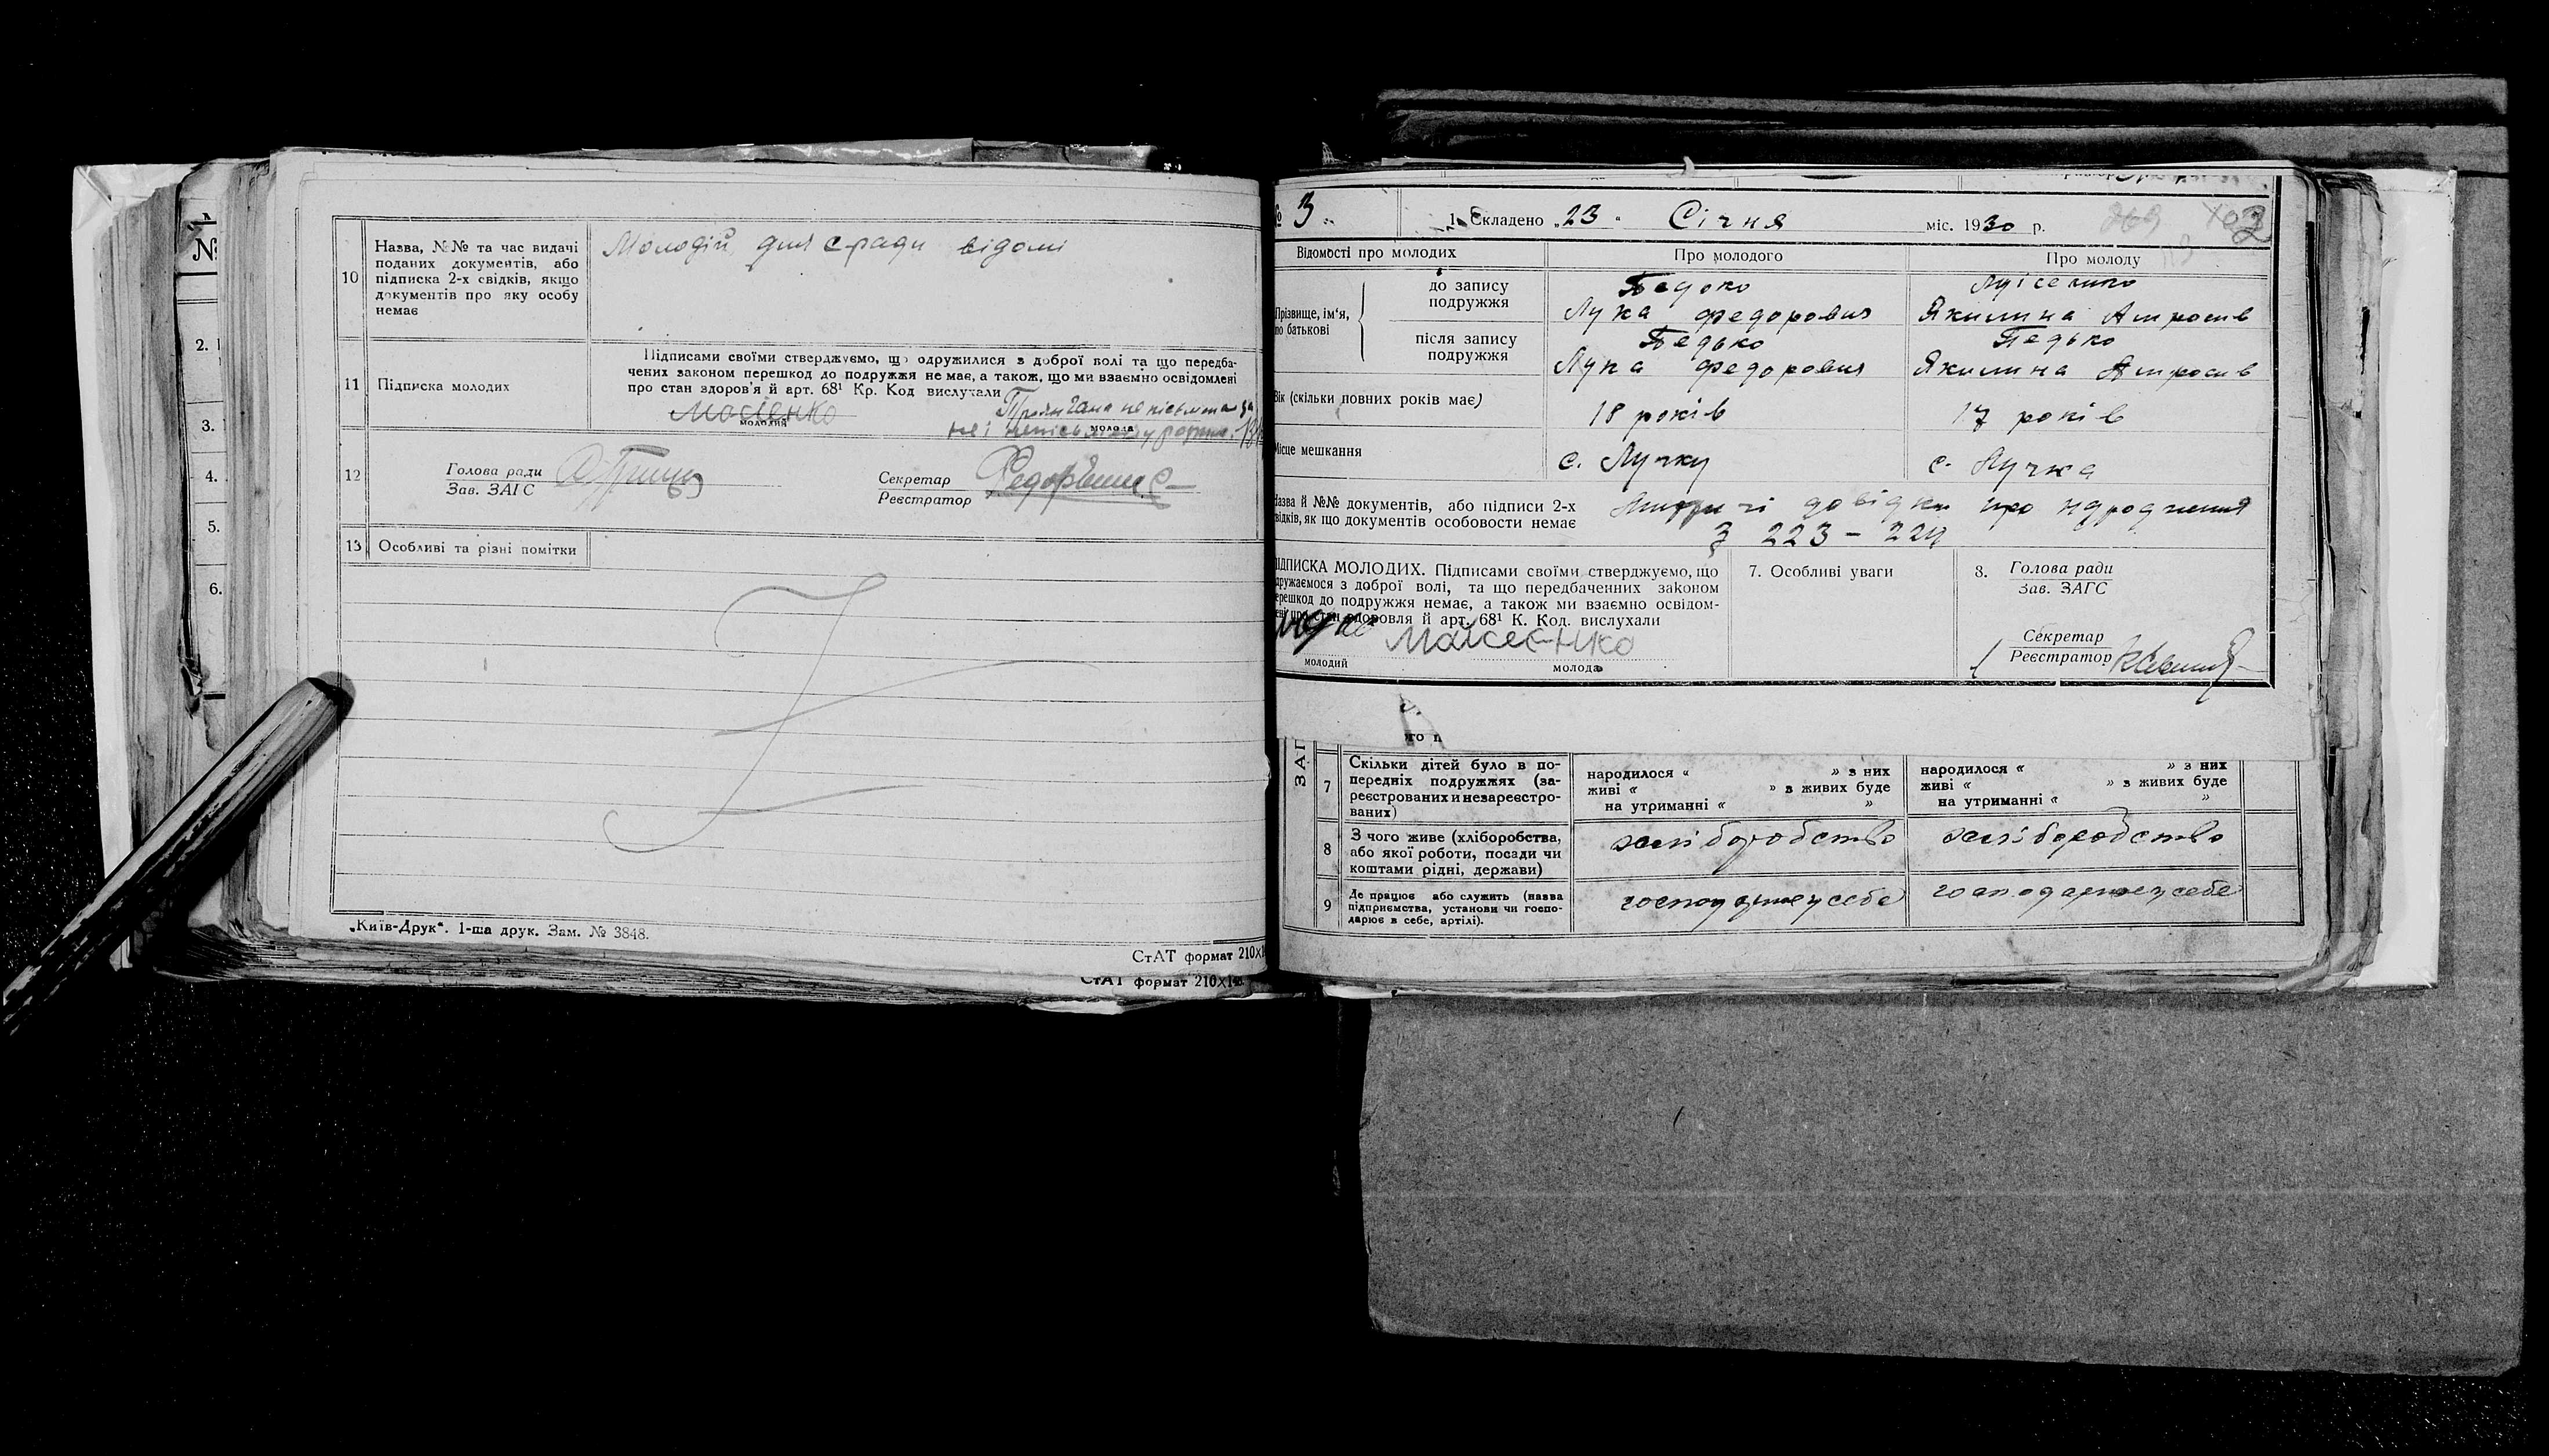 №
2.
3.
4.
5.
6.
10
Назва, №№ та час видачі
поданих документів, або
підписка 2-х свідків, якщо
документів про яку особу
немає
Молодій для сради відомі
11 Підписка молодих
Підписами своїми стверджуємо, що одружилися з доброї волі та що передба-
чених законом перешкод до подружжя не має, а також, що ми взаємно освідомлені
про стан здоров'я й арт. 68¹ Кр. Код вислухали
молодий
молода
12
Голова ради
Зав. ЗАГС
Секретар
Реєстратор
13 Особливі та різні помітки
„Київ-Друк“. 1-ша друк. Зам. № 3848.
СтАТ формат 210х1
СтАТ формат 210х148
3 1. Складено „23“ Січня міс. 1930 р.
Відомості про молодих
Про молодого
Про молоду
Прізвище, ім'я,
по батькові
до запису
подружжя
Педько
Лука Федорович
Якилина Амросив
після запису
подружжя
Педько
Лука Федорович
Педько
Якилина Амросив
Вік (скільки повних років має)
18 років
17 років
Місце мешкання
с. Лучку
с. Лучка
Назва й №№ документів, або підписи 2-х
свідків, як що документів особовости немає
довідки про народження
з 223 – 224
ПІДПИСКА МОЛОДИХ. Підписами своїми стверджуємо, що
одружаємося з доброї волі, та що передбаченних законом
перешкод до подружжя немає, а також ми взаємно освідом-
лені про стан здоровля й арт. 68¹ К. Код. вислухали
Мойсенко
молодий
молода
7. Особливі уваги
8. Голова ради
Зав. ЗАГС
Секретар
Реєстратор
7
Скільки дітей було в по-
передніх подружжях (за-
реєстрованих и незареєстро-
ваних)
народилося “ ” з них
живі “ ” з живих буде
на утриманні “ ”
народилося “ ” з них
живі “ ” з живих буде
на утриманні “ ”
8
З чого живе (хліборобства,
або якої роботи, посади чи
коштами рідні, держави)
хліборобство
хліборобство
9
Де працює або служить (назва
підприємства, установи чи госпо-
дарює в себе, артілі).
господарює у себе
господарює у себе